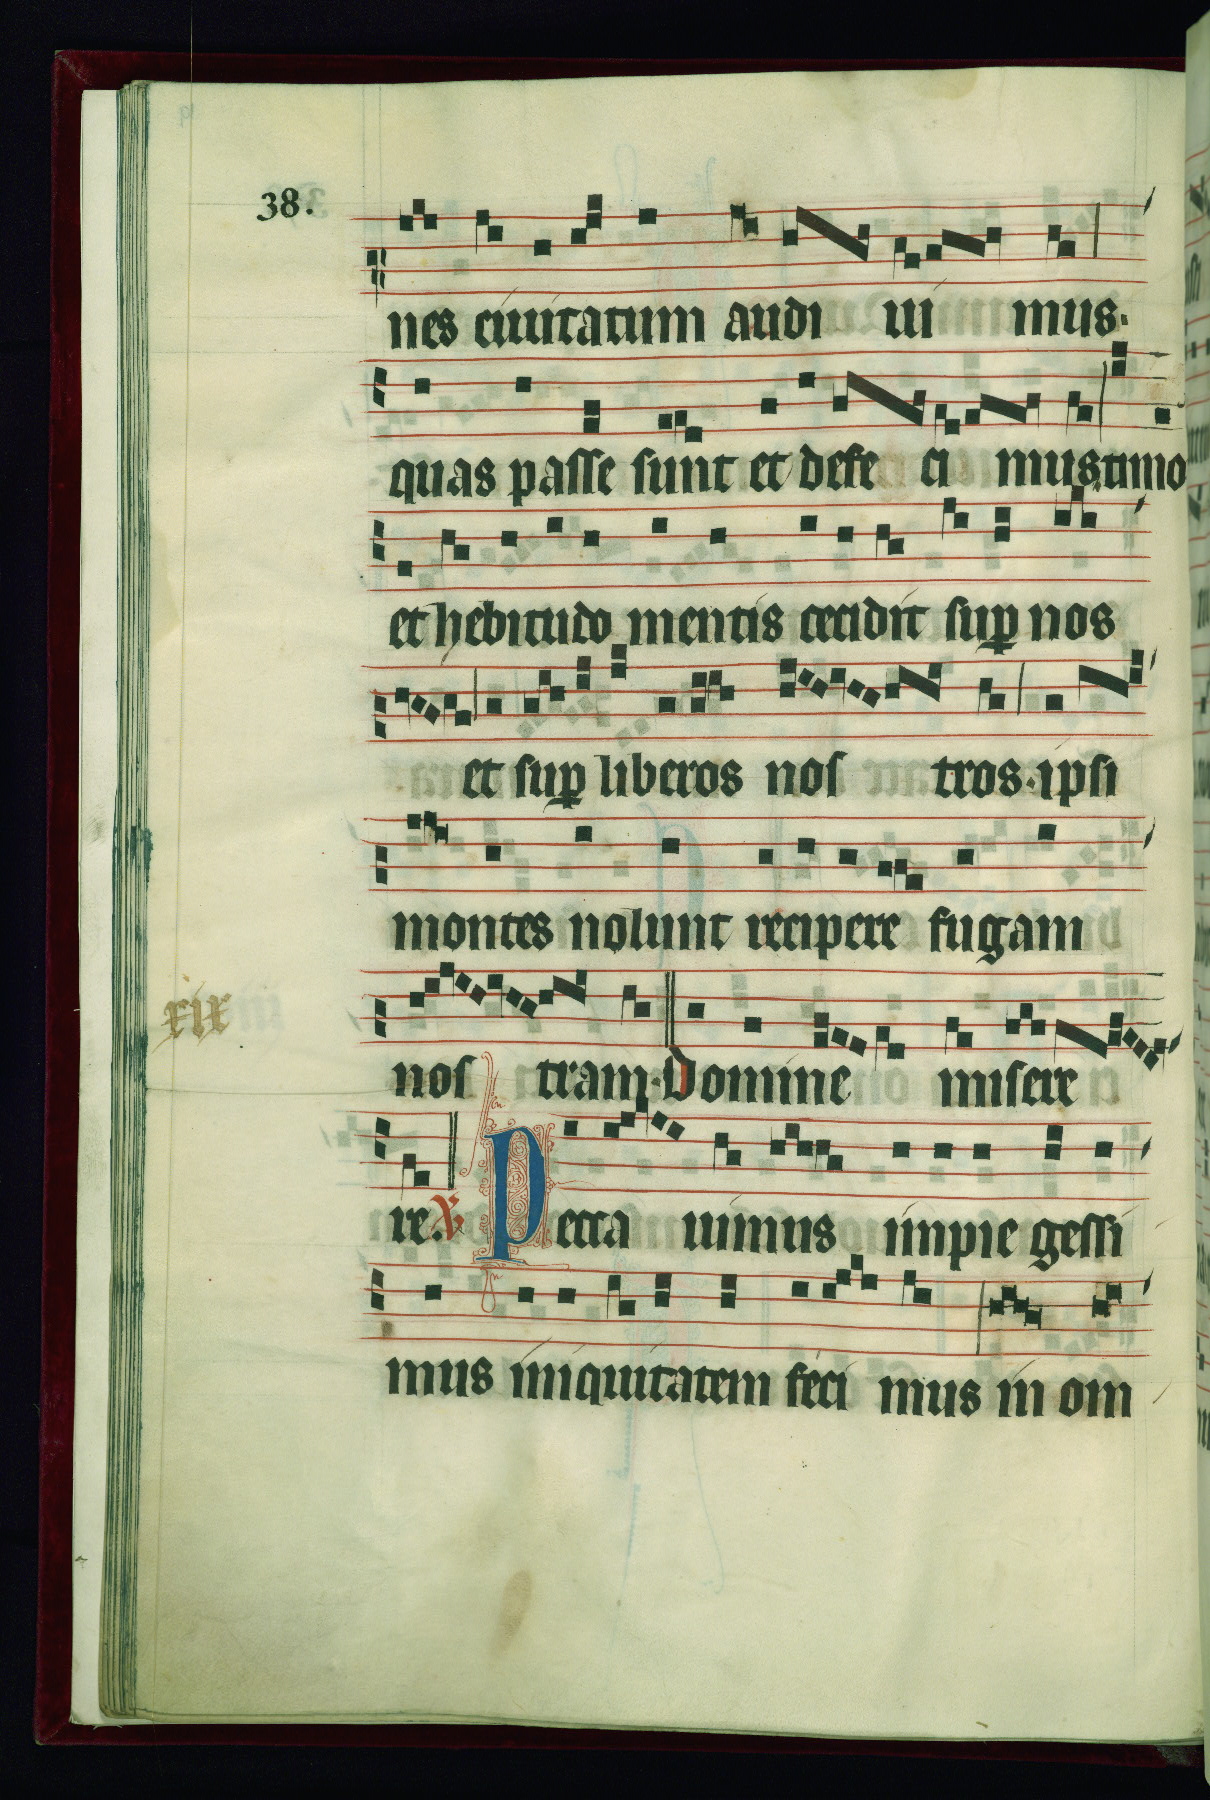 38.
nes ciuitatum audi ui mus.
quas passe sunt et defe ci mus. timo
et hebitudo mentis cecidit sup nos
et sup liberos nos tros. ipsi
montes nolunt recipere fugam
xix
nos tram. Domine misere
re. ℣ Pecca uimus impie gessi
mus iniquitatem feci mus in om